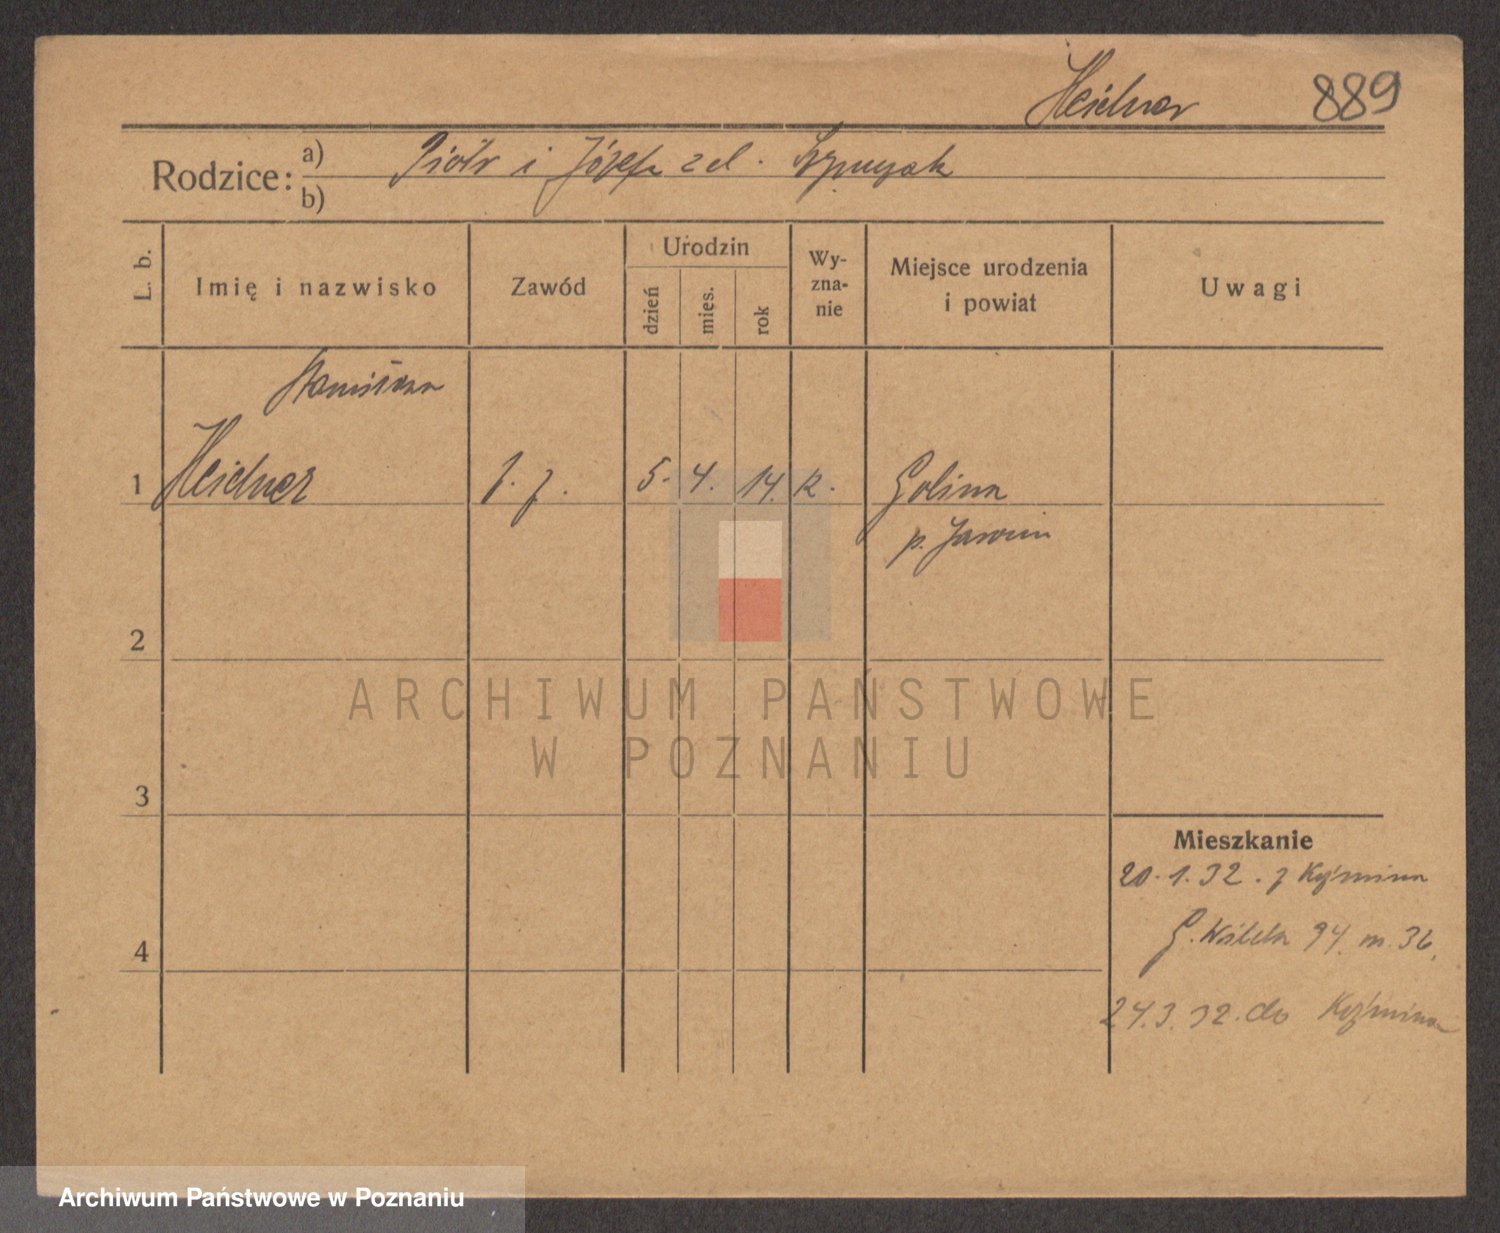 Heidner 889
Rodzice: a) Piotr i Józefa zd. Szymczak
b)
L. b.
Imię i nazwisko
Zawód
Urodzin
dzień
mies.
rok
Wy-
zna-
nie
Miejsce urodzenia
i powiat
Uwagi
Stanisława
1 Heidner 5. 4. 14. R. Golina
p. Jarocin
2
3
4
Mieszkanie
20.1.32. z Koźmina
G. Wilda 94. m. 36.
24.3.32. do Koźmina
ARCHIWUM PAŃSTWOWE
W POZNANIU
Archiwum Państwowe w Poznaniu